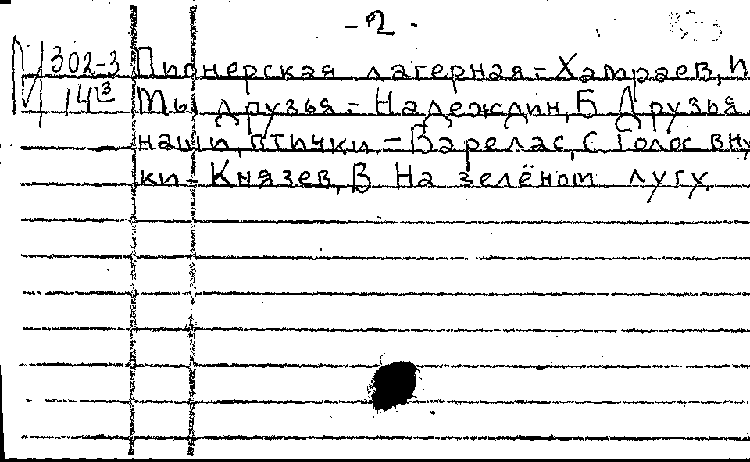 - 2 -
302-3 Пионерская лагерная - Хамраев, И
14 3 Мы друзья - Надеждин, Б Друзья
наши, птички. - Варелас, С Голос вну
ки - Князев, В На зелёном лугу.